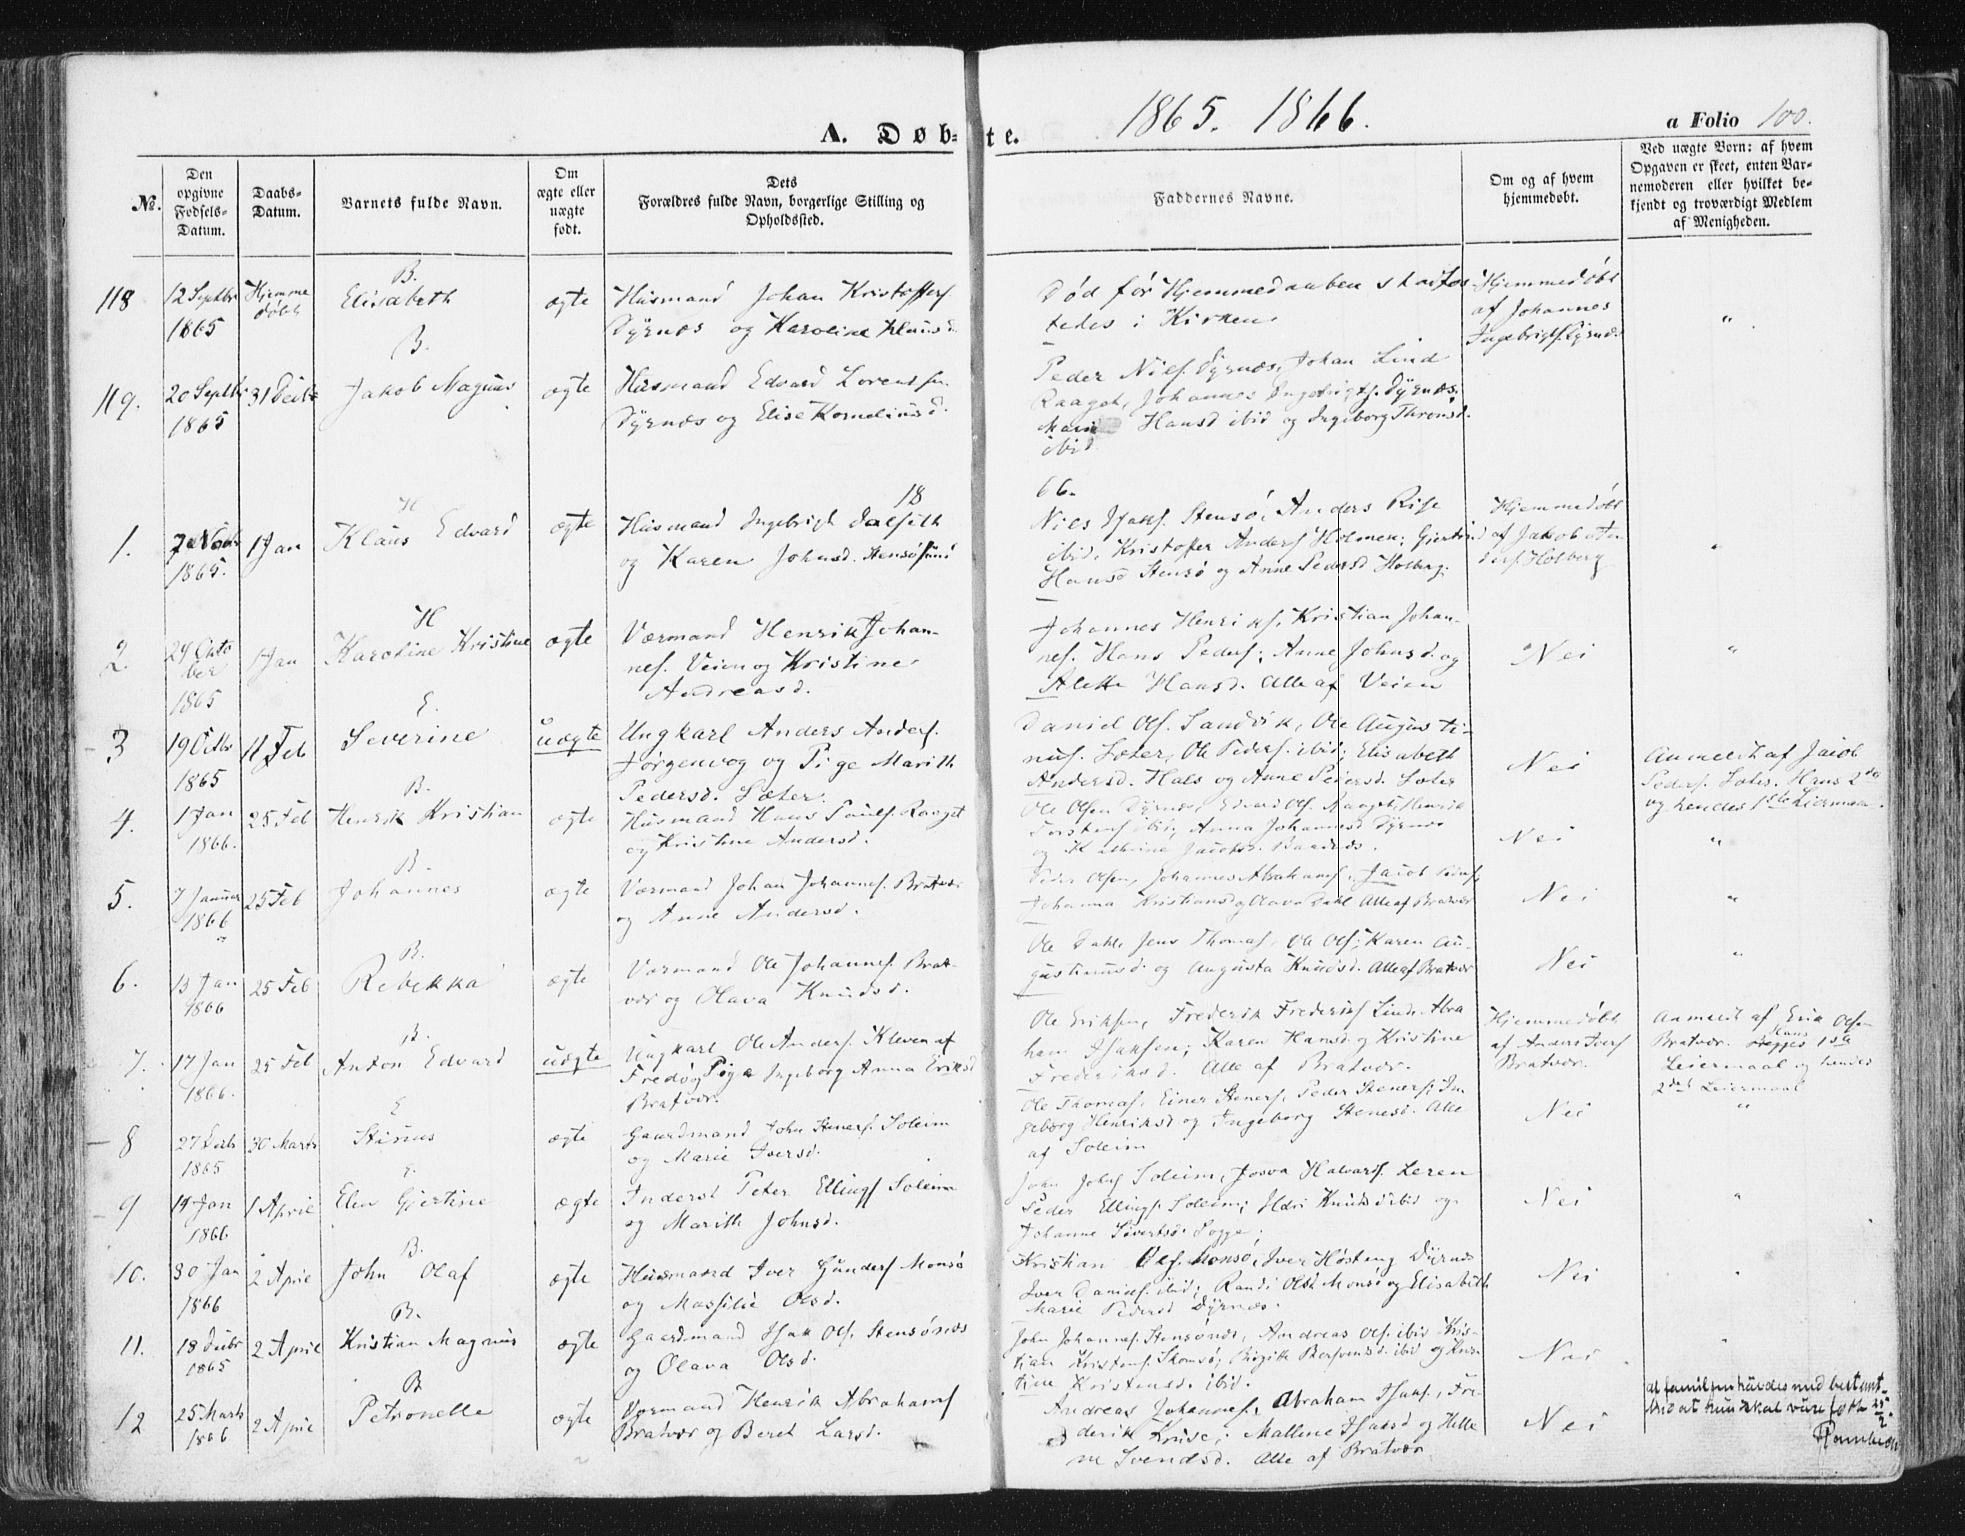 A. Døb-te. 1865. 1866. a Folio 100.
№.
Den opgivne Fødsels-Datum.
Daabs-Datum.
Barnets fulde Navn.
Om ægte eller uægte født.
Dets Forældres fulde Navn, borgerlige Stilling og Opholdssted.
Faddernes Navne.
Om og af hvem hjemmedøbt.
Ved uægte Born: af hvem Opgaven er skeet, enten Barnemoderen eller hvilket bekjendt og troværdigt Medlem af Menigheden.
118 12 Septbr 1865 Hjemme døbt
B.
Elisabeth ægte
Husmand Johan Kristoffers.
Dyrnæs og Karoline Klausd.
Død før Hjemmedaaben stadfæs-
tedes i Kirken.
Hjemmedøbt
af Johannes
Ingebrigts. Dyrnæs
"
119. 20 Septbr 1865 31 Decbr
B.
Jakob Magnus ægte
Husmand Edvard Lorentsen
Dyrnæs og Elise Korneliusd.
Peder Niels. Dyrnæs, Johan Lind
Raaget, Johannes Ingebrigts. Dyrnæs.
Marie Hansd ibid og Ingeborg Thronsd.
ibid.
18 66.
1. 7de Novbr 1865. 1 Jan
H
Klaus Edvard ægte
Husmand Ingebrigt
og Karen Johnsd. Stensøsund
Niels Isaks. Stensø, Anders Rise
ibid, Kristoffer Anders. Holmen; Gjertrud
Hansd Stensø og Anne Pedersd Holberg.
Hjemmedøbt
af Jakob An-
ders. Holberg
"
2. 24 Octo
ber
1865 1 Jan
H
Karoline Kristine ægte
Værmand Henrik Johan-
nes. Veien og Kristine
Andreasd.
Johannes Henriks, Kristian Johan-
nes. Hans Peders; Anne Johnsd. og
Alette Hansd. Alle af Veien
Nei "
3 19 Octbr 1865 11 Feb
E.
Severine uægte
Ungkarl Anders Anders.
Jørgenvog og Pige Marith
Pedersd. Sæter.
Daniel Ols. Sandvik, Ole Augusti-
nus. Sæter, Ole Peders. ibid; Elisabeth
Andersd. Hals og Anne Pedersd. Sæter
Nei
Anmeldt af Jacob
Peders. Sæter. Hans 2det
og hendes 1ste Leiermaal.
4. 1 Jan 1866. 25 Feb
B.
Henrik Kristian ægte
Husmand Hans Pouls. Raaget
og Kristine Andersd.
Ole Olsen Dyrnæs, Edvard Ols. Raaget, Henrik
Torstens. ibid, Anna Johannesd Dyrnæs
og Kathrine Jacobsd.
Nei "
5. 7 Januar 1866 25 Feb
B.
Johannes ægte
Værmand Johan Johannes. Bratvær
og Anne Andersd.
Peder Olsen, Johannes Abrahams., Jacob Peders,
Johanna Kristiansd og Olava Dahl Alle af Bratvær
Nei "
6. 13 Jan 1866 25 Feb
B.
Rebekka ægte
Værmand Ole Johannes. Brat-
vær og Olava Knudsd.
Ole Dahl, Jens Thomas, Ole Ols; Karen Au-
gustinusd. og Augusta Knudsd. Alle af Bratvær
Nei "
7. 17 Jan 1866. 25 Feb
B.
Anton Edvard uægte
Ungkarl Ole Anders. Kleven af
Fredø og Pige Ingeborg Anna Eriksd
Bratvær.
Ole Eriksen, Frederik Frederiks Lind, Abra
ham Isaksen; Karen Hansd og Kristine
Frederiksd. Alle af Bratvær.
Hjemmedøbt
af Anders Ivers
Bratvær.
Anmeldt af Erik Olsen
Bratvær. Hans 1ste
Leiermaal og hendes
2det Leiermaal
8 27 Decbr 1865 30 Marts
E
Stinus ægte
Gaardmand John Steners. Soleim
og Marie Iversd.
Ole Thomas, Einer Steners, Peder Steners; In
geborg Henriksd og Ingeborg Stenersd. Alle
af Soleim
Nei "
9 14 Jan 1866 1 April
E.
Elen Gjertine ægte
Inderst Peter Ellings Soleim
og Marith Johnsd.
John Johs Soleim, Josva Halvards. Leren
Peder Ellings. Soleim; Ildri Knudsd ibid og
Johanne Sivertsd. Sogge.
Nei "
10. 30 Jan 1866 2 April
B.
John Olaf ægte
Husmand Iver Gunders Monsø
og Massilie Olsd.
Kristian Ols. Monsø, Iver Høsteng Dyrnæs
Iver Daniels. ibid; Randi Olsd. Monsø og Elisabeth
Marie Pedersd Dyrnæs.
Nei "
11. 18 Decbr 1865 2 April
B.
Kristian Magnus ægte
Gaardmand Isak Ols. Stensønæs
og Olava Olsd.
John Johannes. Stensønæs, Andreas Ols. ibid Kris-
tian Kristens. Skomsø; Birgitte Berfvensd. ibid og Kris-
tine Kristensd. ibid.
Nei "
12 25 Marts 1866 2 April
B
Petronelle ægte
Værmand Henrik Abrahams
Bratvær og Beret Larsd.
Andreas Johannes., Abraham Isaks., Fre-
derik Kruse; Mallene Isaksd og Helle
ne Svendsd. Alle af Bratvær
Nei
at familjen hævdes med bestemt-
hed at hun skal være født 25/2.